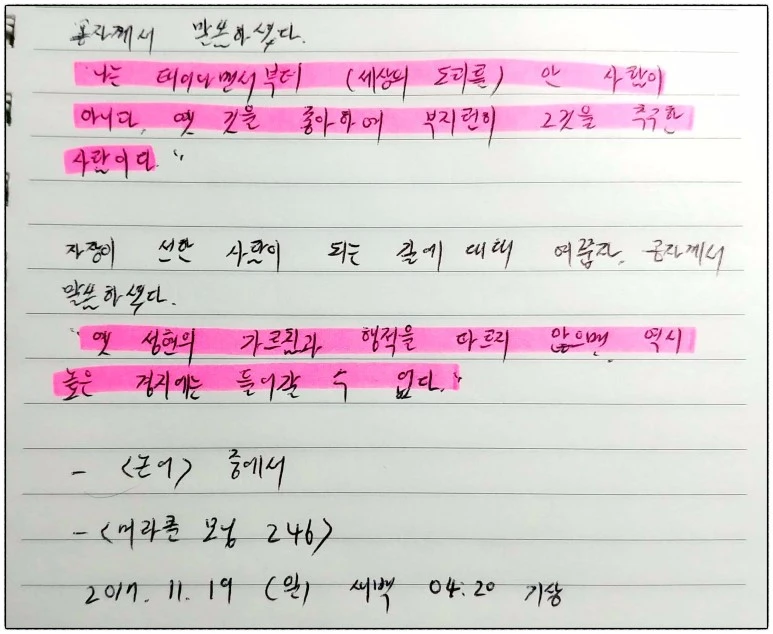 공자께서 말씀하셨다.
"나는 태어나면서부터 (세상의 도리를) 안 사람이
아니다. 옛 것을 좋아하여 부지런히 그것을 추구한
사람이다."
자장이 선한 사람이 되는 길에 대해 여쭙자, 공자께서
말씀하셨다.
"옛 성현의 가르침과 행적을 따르지 않으면, 역시
높은 경지에는 들어갈 수 없다."
- <논어> 중에서
- <미라클 모닝 246>
2017. 11. 19 (일) 새벽 04:20 기상